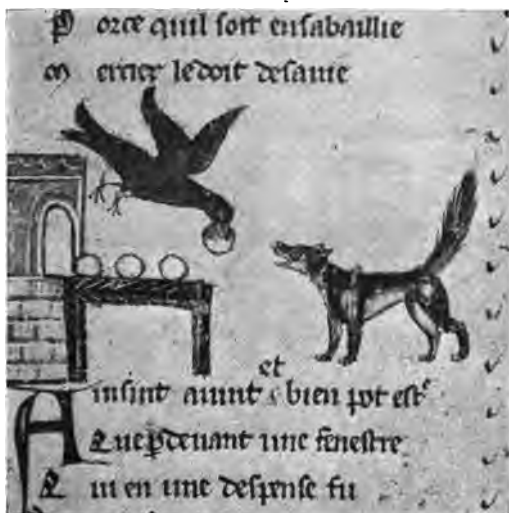 P orce quil soit ensabaillie
M ercier ledoit desauie
et
A insint auint & bien pot est͛
Q ue ꝑdeuant une fenestre
Q ui en une despense fu